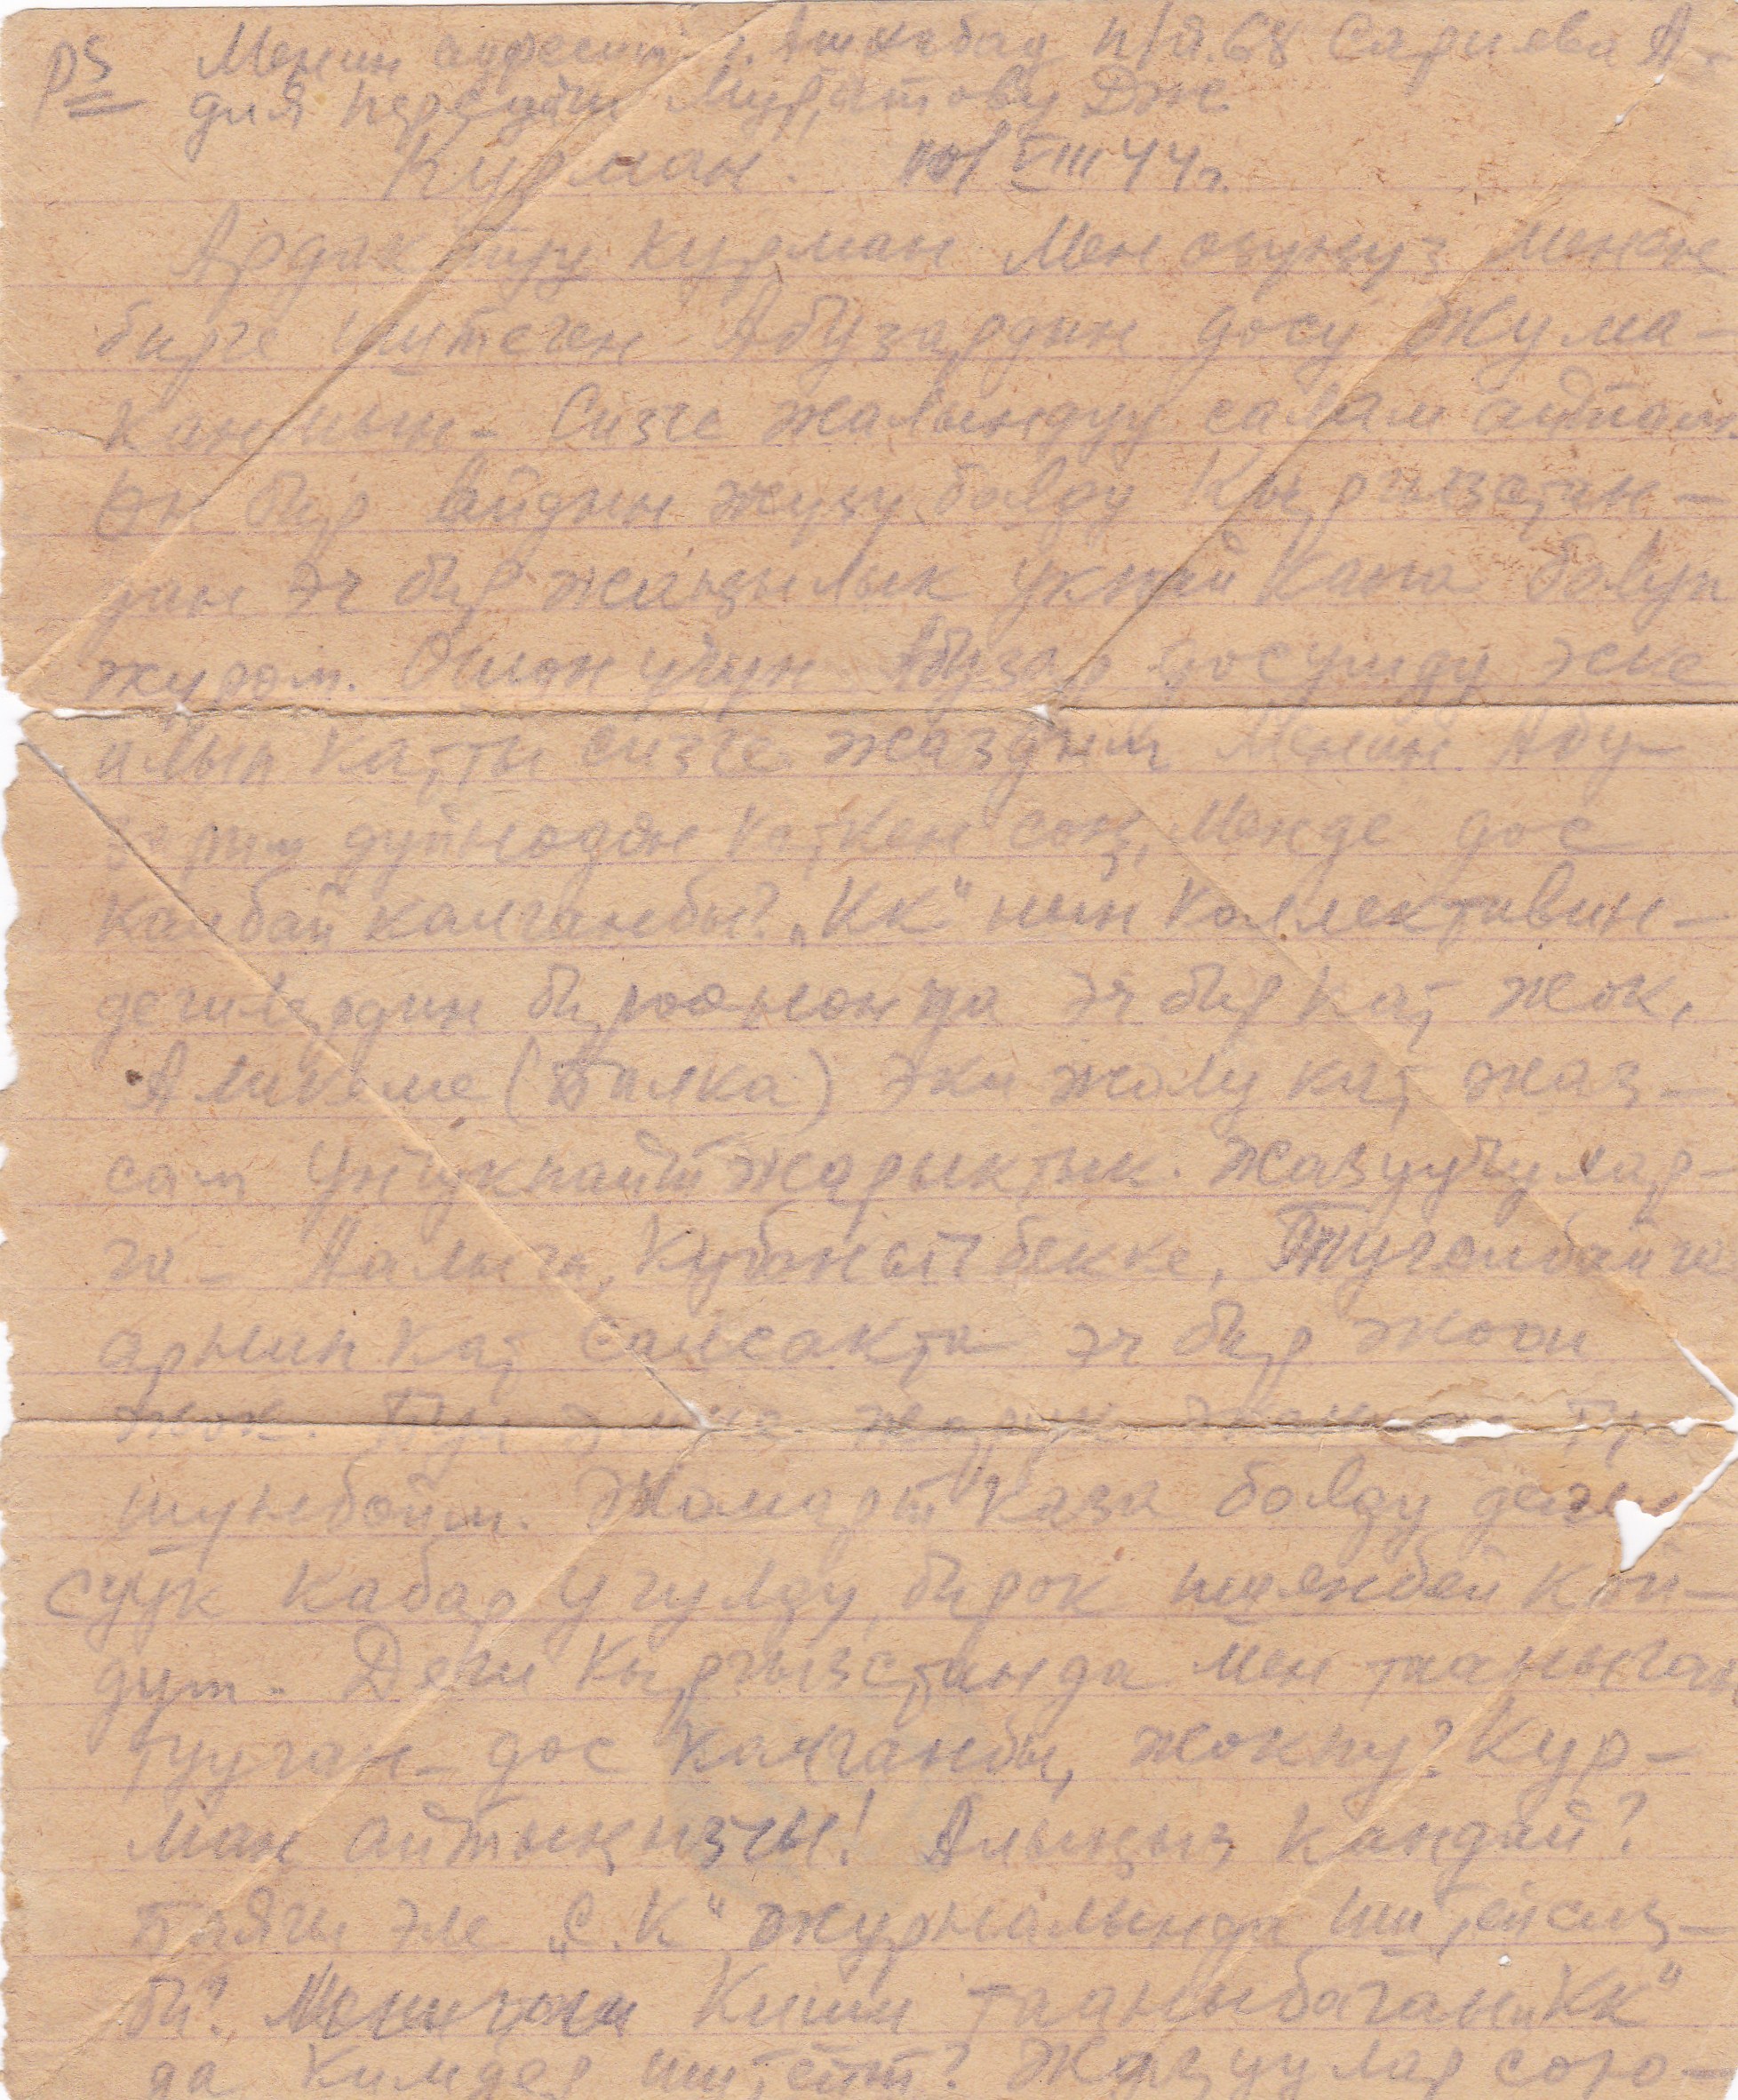 PS Менин адресим: г. Ашхабад п/я. 68 Сариева А.
для передачи Муратову Дж.
Курман. VIII 44г.
Ардактуу Курман Мен озунуз менен
бирге иштеген Абузардын досу Жума-
Сизге жалындуу салам айтам.
Он бир айдын жузу болду Кыргызстан-
дан эч бир жанылык укпай капа болуп
журом. Ошон учун Абузар досумду эске
алып катты сизге жаздым Менин Абу-
зарым дуйнодон кеткен сон, Менде дос
калбай калганбы? „КК" нын коллективин-
дегилердин бироонон да эч бир кат жок.
(Балка) эки жолу кат жаз-
сам Унчукпайт жарыктык. Жазуучулар-
га - Аалыга, Кубанычбекке, Тугелбайга
арнап кат салсак та эч бир жооп
жок. Бул эмне
шунбойм. Жомарт каза болду деген
суук кабар угулду, бирок ишенбей кой-
дум. Деги Кыргызстанда мен тааныган
тууган-дос калганбы, жокпу? Кур-
ман айтынызчы! Алыныз кандай?
Баягы эле „С.К" журналында иштейсиз-
би? Киши тааныбаган „КК"
да Кимдер иштейт?